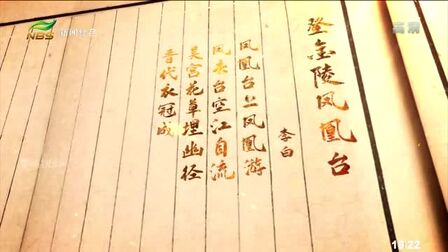 登金陵凤凰台
李白
凤凰台上凤凰游
凤去台空江自流
吴宫花草埋幽径
晋代衣冠成
NBS
高清